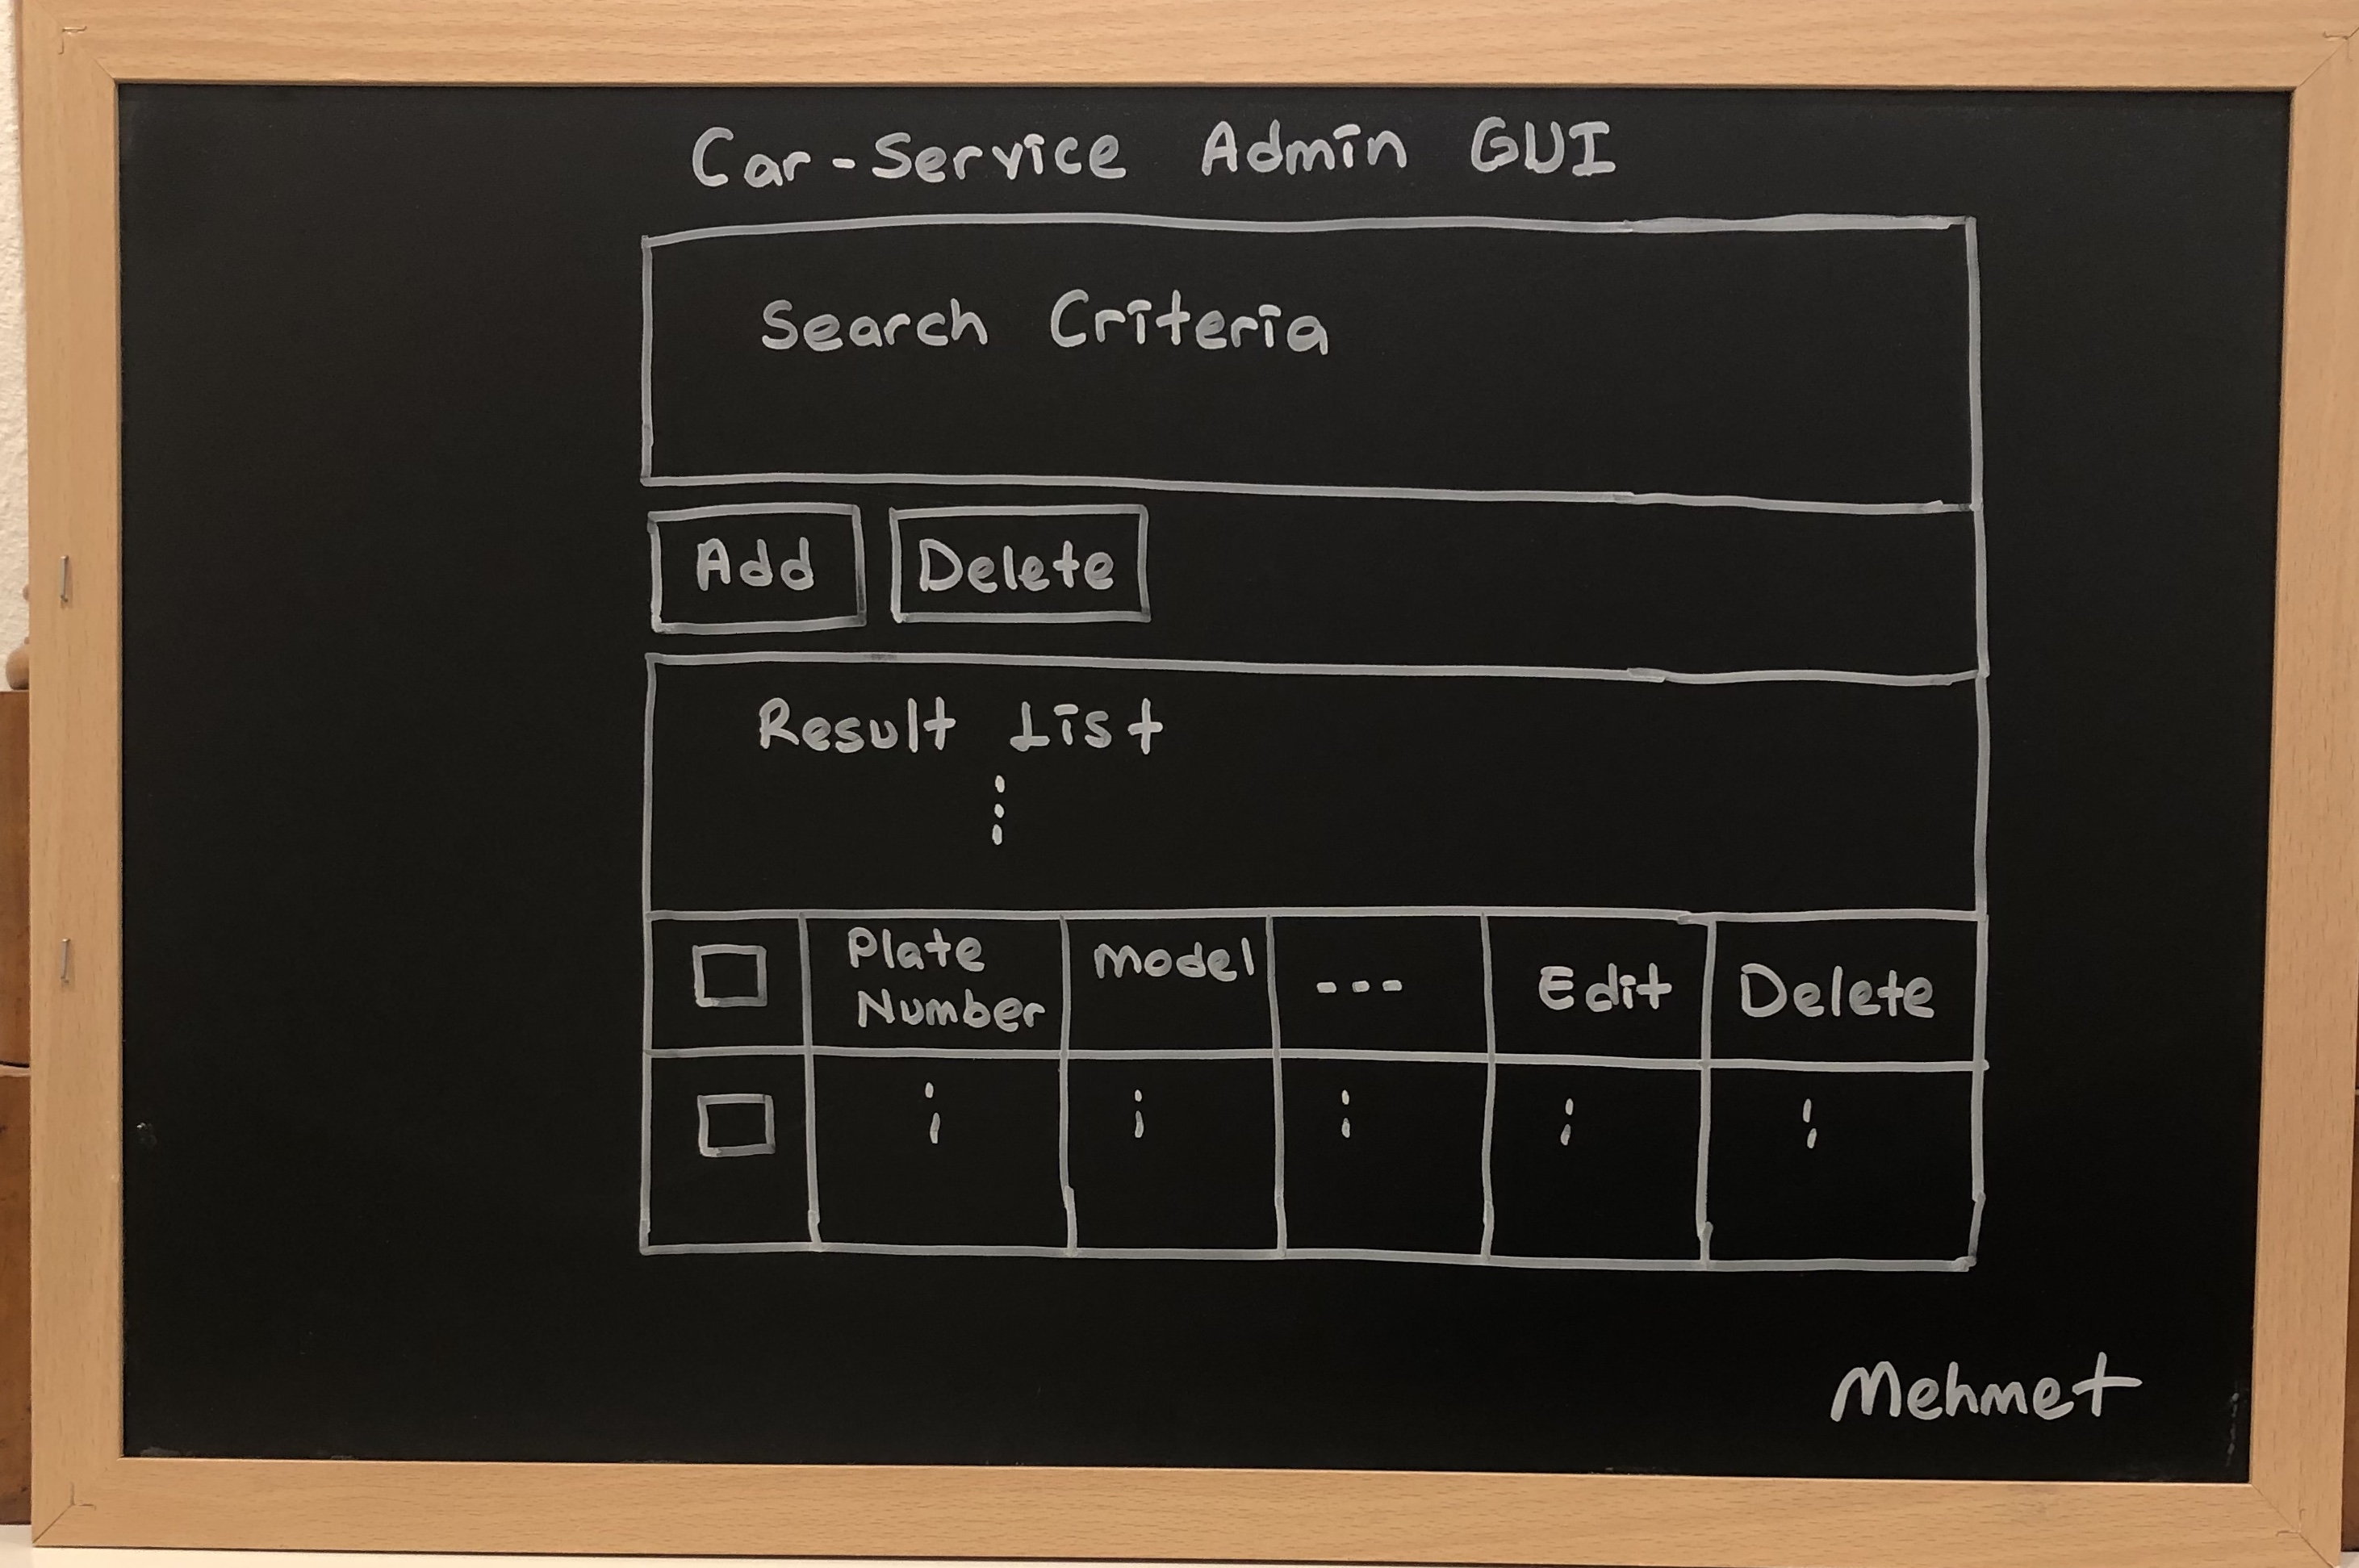 Car-Service Admin GUI
Search Criteria
Add Delete
Result List
Plate Number Model --- Edit Delete
Mehmet